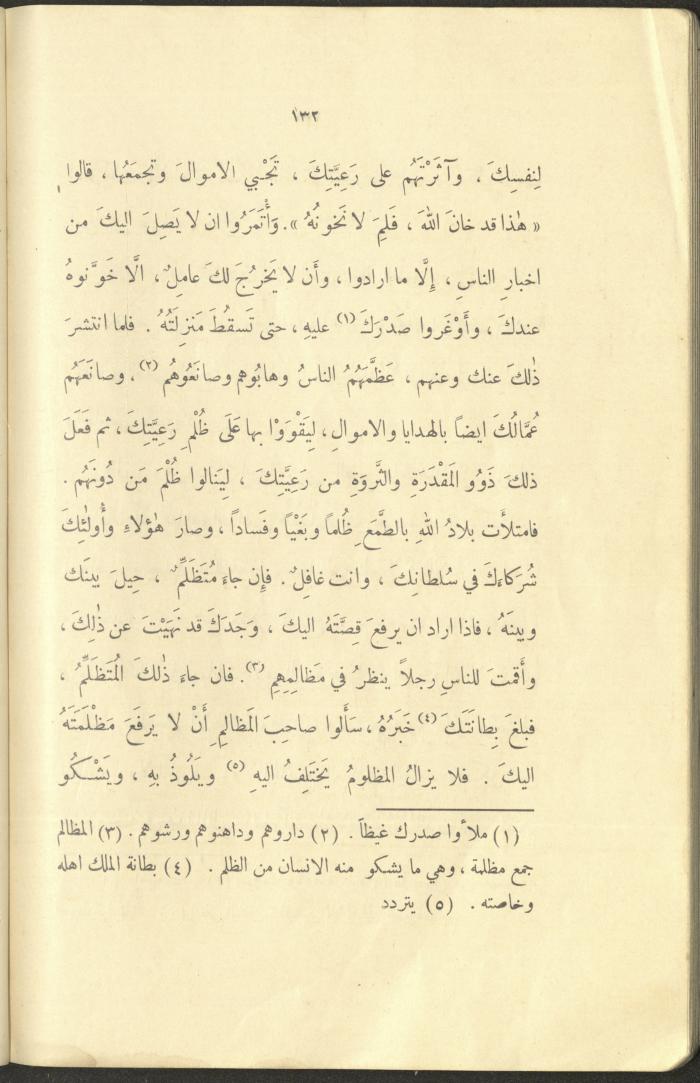 ١٣٢
لِنفسِكَ ، وآثَرْتَهُم على رَعِيَّتِكَ ، تَجْبي الاموالَ وتجمَعُها ، قالوا
« هٰذا قد خانَ اللهَ ، فَلِمَ لا نَخونُهُ » . وَأْتَمَرُوا ان لا يَصِلَ اليكَ من
اخبارِ الناسِ ، إِلَّا ما ارادوا ، وأَن لا يَخرُجَ لكَ عامِلٌ ، الَّا خَوَّنوهُ
عندكَ ، وأَوْغَروا صَدْرَكَ (١) عليهِ ، حتى تَسقُطَ مَنزِلَتُهُ . فلما انتشرَ
ذٰلكَ عنك وعنهم ، عَظَّمَهُمُ الناسُ وهابُوهم وصانَعُوهُم (٢) ، وصانَعَهُم
عُمَّالُكَ ايضاً بالهدايا والاموالِ ، لِيَقْوَوْا بها عَلَى ظُلْمِ رَعِيَّتِكَ ، ثم فَعَلَ
ذلكَ ذَوُو المَقْدَرَةِ والثَّروَةِ من رَعِيَّتِكَ ، لِيَنالوا ظُلْمَ مَن دُونَهُم .
فامتلأَت بلادُ اللهِ بالطَّمَعِ ظُلماً وبَغْيَاً وفَساداً ، وصارَ هٰؤلاءِ وأُولٰئِكَ
شُرَكاءَكَ في سُلطانِكَ ، وانت غافِلٌ . فإِن جاءَ مُتَظَلِّمٌ ، حِيلَ بينَك
وبينَهُ ، فاذا اراد ان يرفعَ قِصَّتَهُ اليكَ ، وَجَدَكَ قد نَهَيْتَ عن ذٰلِكَ ،
وأَقمتَ للناسِ رجلاً ينظرُ في مَظالِمِهِم (٣) . فان جاءَ ذٰلكَ المُتَظَلِّمُ ،
فبلغَ بِطانَتَكَ (٤) خَبَرُهُ ، سَأَلوا صاحِبَ المَظالِمِ أَنْ لا يَرفَعَ مَظْلَمَتَهُ
اليكَ . فلا يزالُ المظلومُ يَختَلِفُ اليهِ (٥) ويَلُوذُ بهِ ، ويَشْكُو
(١) ملأوا صدرك غيظاً . (٢) داروهم وداهنوهم ورشوهم . (٣) المظالم
جمع مظلمة ، وهي ما يشكو منه الانسان من الظلم . (٤) بطانة الملك اهله
وخاصته . (٥) يتردد